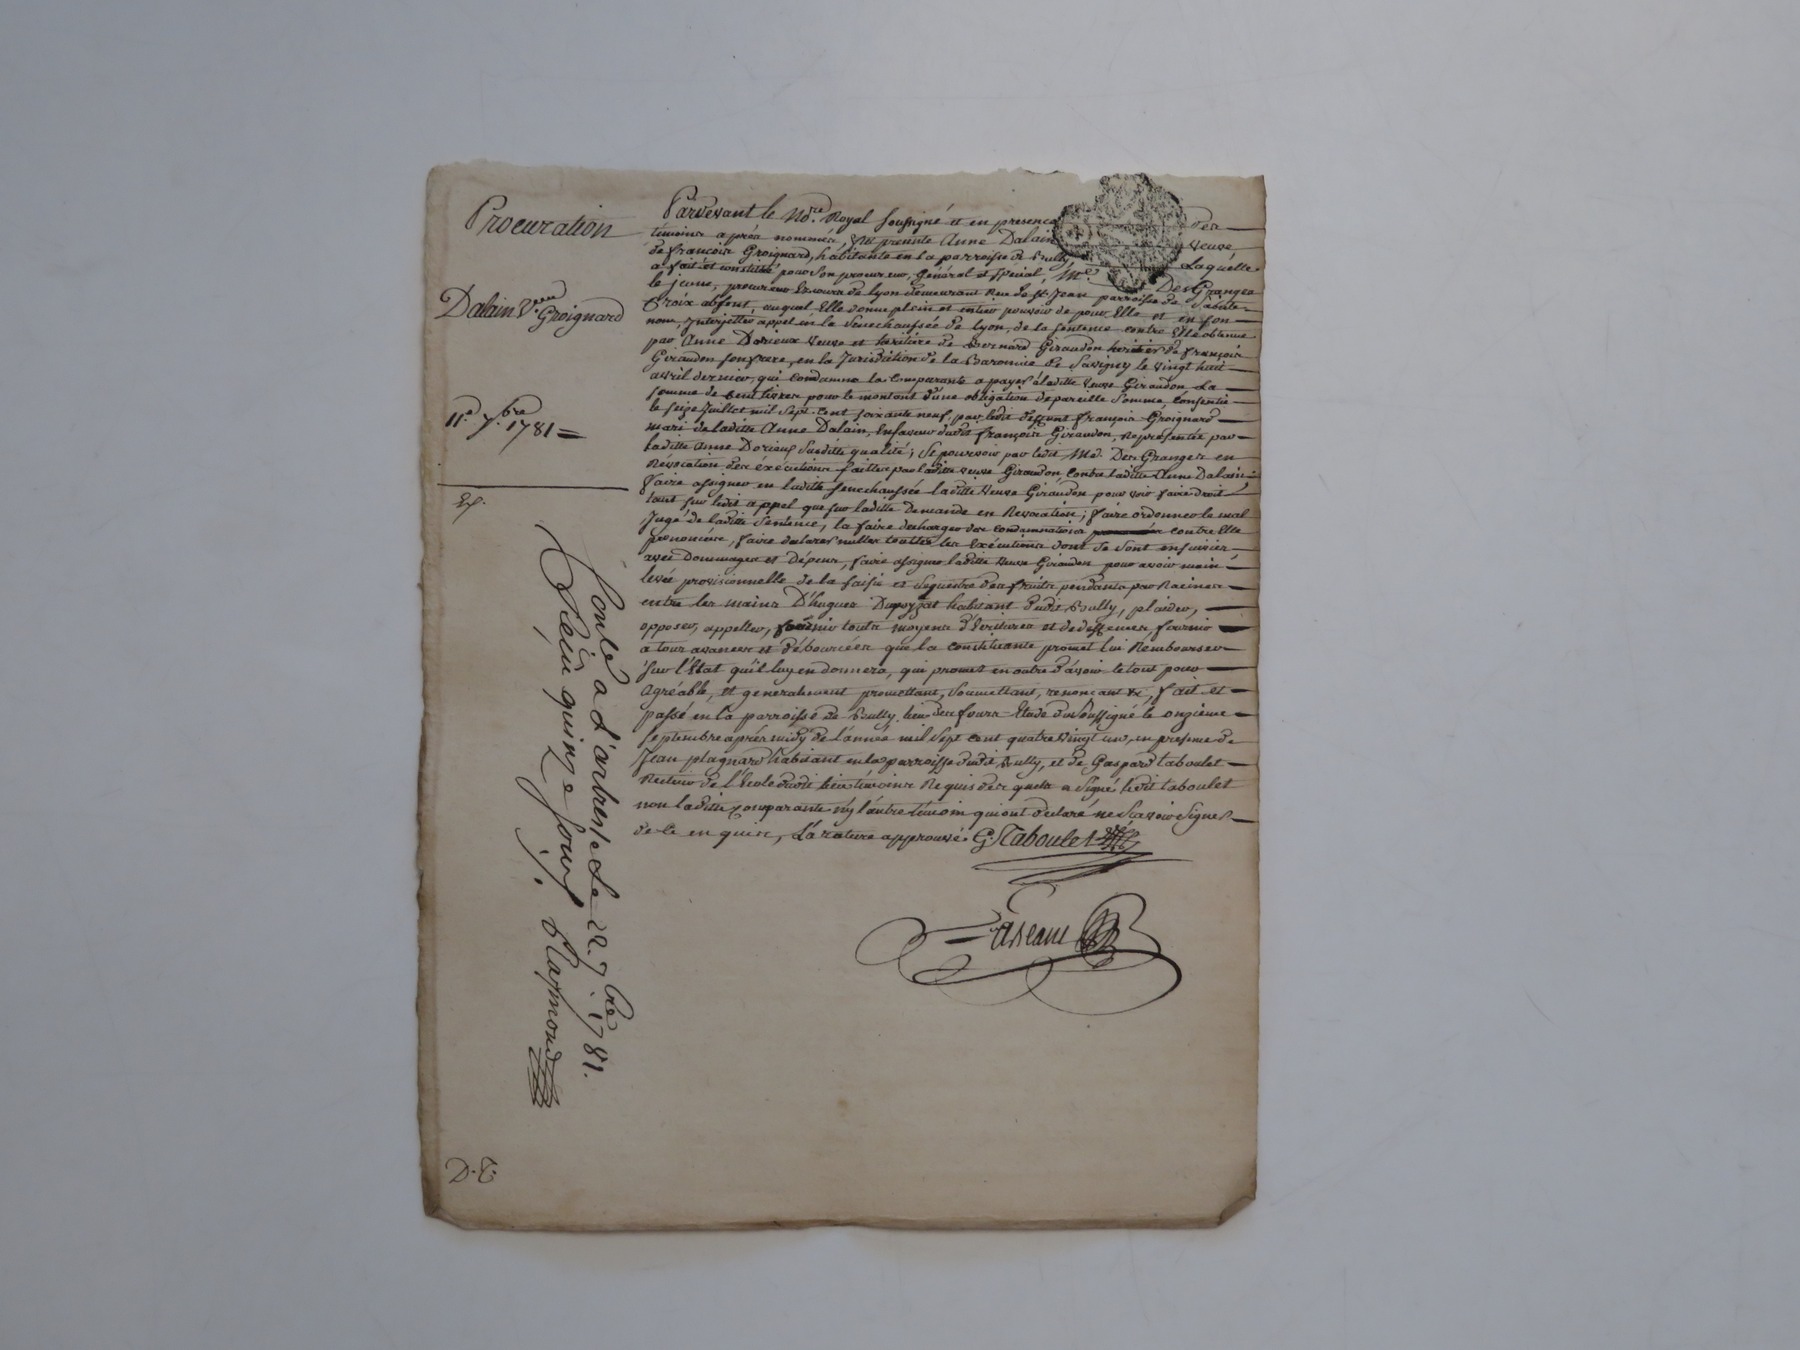 Procuration
Dalain Ve. Groignard
11e. 7bre. 1781 =
Pardevant le Nore. Royal soussigné et en presence des
temoins après nommés, fut presente Anne Dalain veuve
de francois Groignard, habitante en la parroisse de Bully, Laquelle
a fait et constitué pour son procureur, Général et special, Me. Des Granges
le jeune, procureur ez cours de Lyon demeurant Rue de St. Jean parroisse de Sainte
Croix absent, auquel Elle donne plein et entier pouvoir de pour Elle et en son
nom, Interjetter appel en la Senechaussée de Lyon, de la sentence contre Elle obtenue
par Anne Dorieux veuve et heritière de Bernard Giraudon heritier de françois
Giraudon son frere, en la Jurisdiction de la Baronnie de Savigny le vingt huit
avril dernier, qui condamne la Comparante a payer à laditte veuve Giraudon La
somme de cent livres pour le montant d'une obligation de pareille somme consentie
le seize Juillet mil sept cent soixante neuf, par ledit deffunt françois Groignard
mari de laditte Anne Dalain, en faveur dudit françois Giraudon, Representée par
laditte Anne Dorieux susditte qualité; Se pourvoir par ledit Me. Des Granges en
Révocation des éxécutions faittes par laditte veuve Giraudon contre laditte Anne Dalain
faire assigner en laditte senechaussée laditte veuve Giraudon pour voir faire droit
tant sur ledit appel que sur laditte Demande en Revocation; faire ordonner le mal
Jugé de laditte Sentence, la faire decharger des condamnations contre Elle
prononcées, faire declarer nulles touttes les Exécutions dont se sont ensuivies
avec Dommages et Dépens, faire assigner laditte veuve Giraudon pour avoir main
levée provisionnelle de la saisie et sequestre des fruits pendants par Racines
entre les mains D'hugues Dupoyzat habitant dudit Bully, plaider,
opposer, appeller, fournir touts moyens d'Ecritures et de deffenses, fournir
a tous avances et débourcées que la constituante promet lui Rembourser
sur l'Etat qu'il luy en donnera, qui promet en outre d'avoir le tout pour
Agréable, et generalement promettant, soumettant, renonçant &c, fait et
passé en la parroisse de Bully, lieu des fours Etude du soussigné le onzieme
septembre après midy de l'année mil sept cent quatre vingt un, en presence de
Jean plagnard habitant en la parroisse dudit Bully, et de Gaspard taboulet
Recteur de l'Ecole dudit lieu temoins Requis desquels a signé ledit taboulet
non laditte Comparante n'y l'autre témoin qui ont declaré ne scavoir Signer
de ce enquis, La rature approuvé G. Taboulet
Conlé a L'arbresle Le 22. 7bre. 1781.
Reçu quinze sous. Raymond